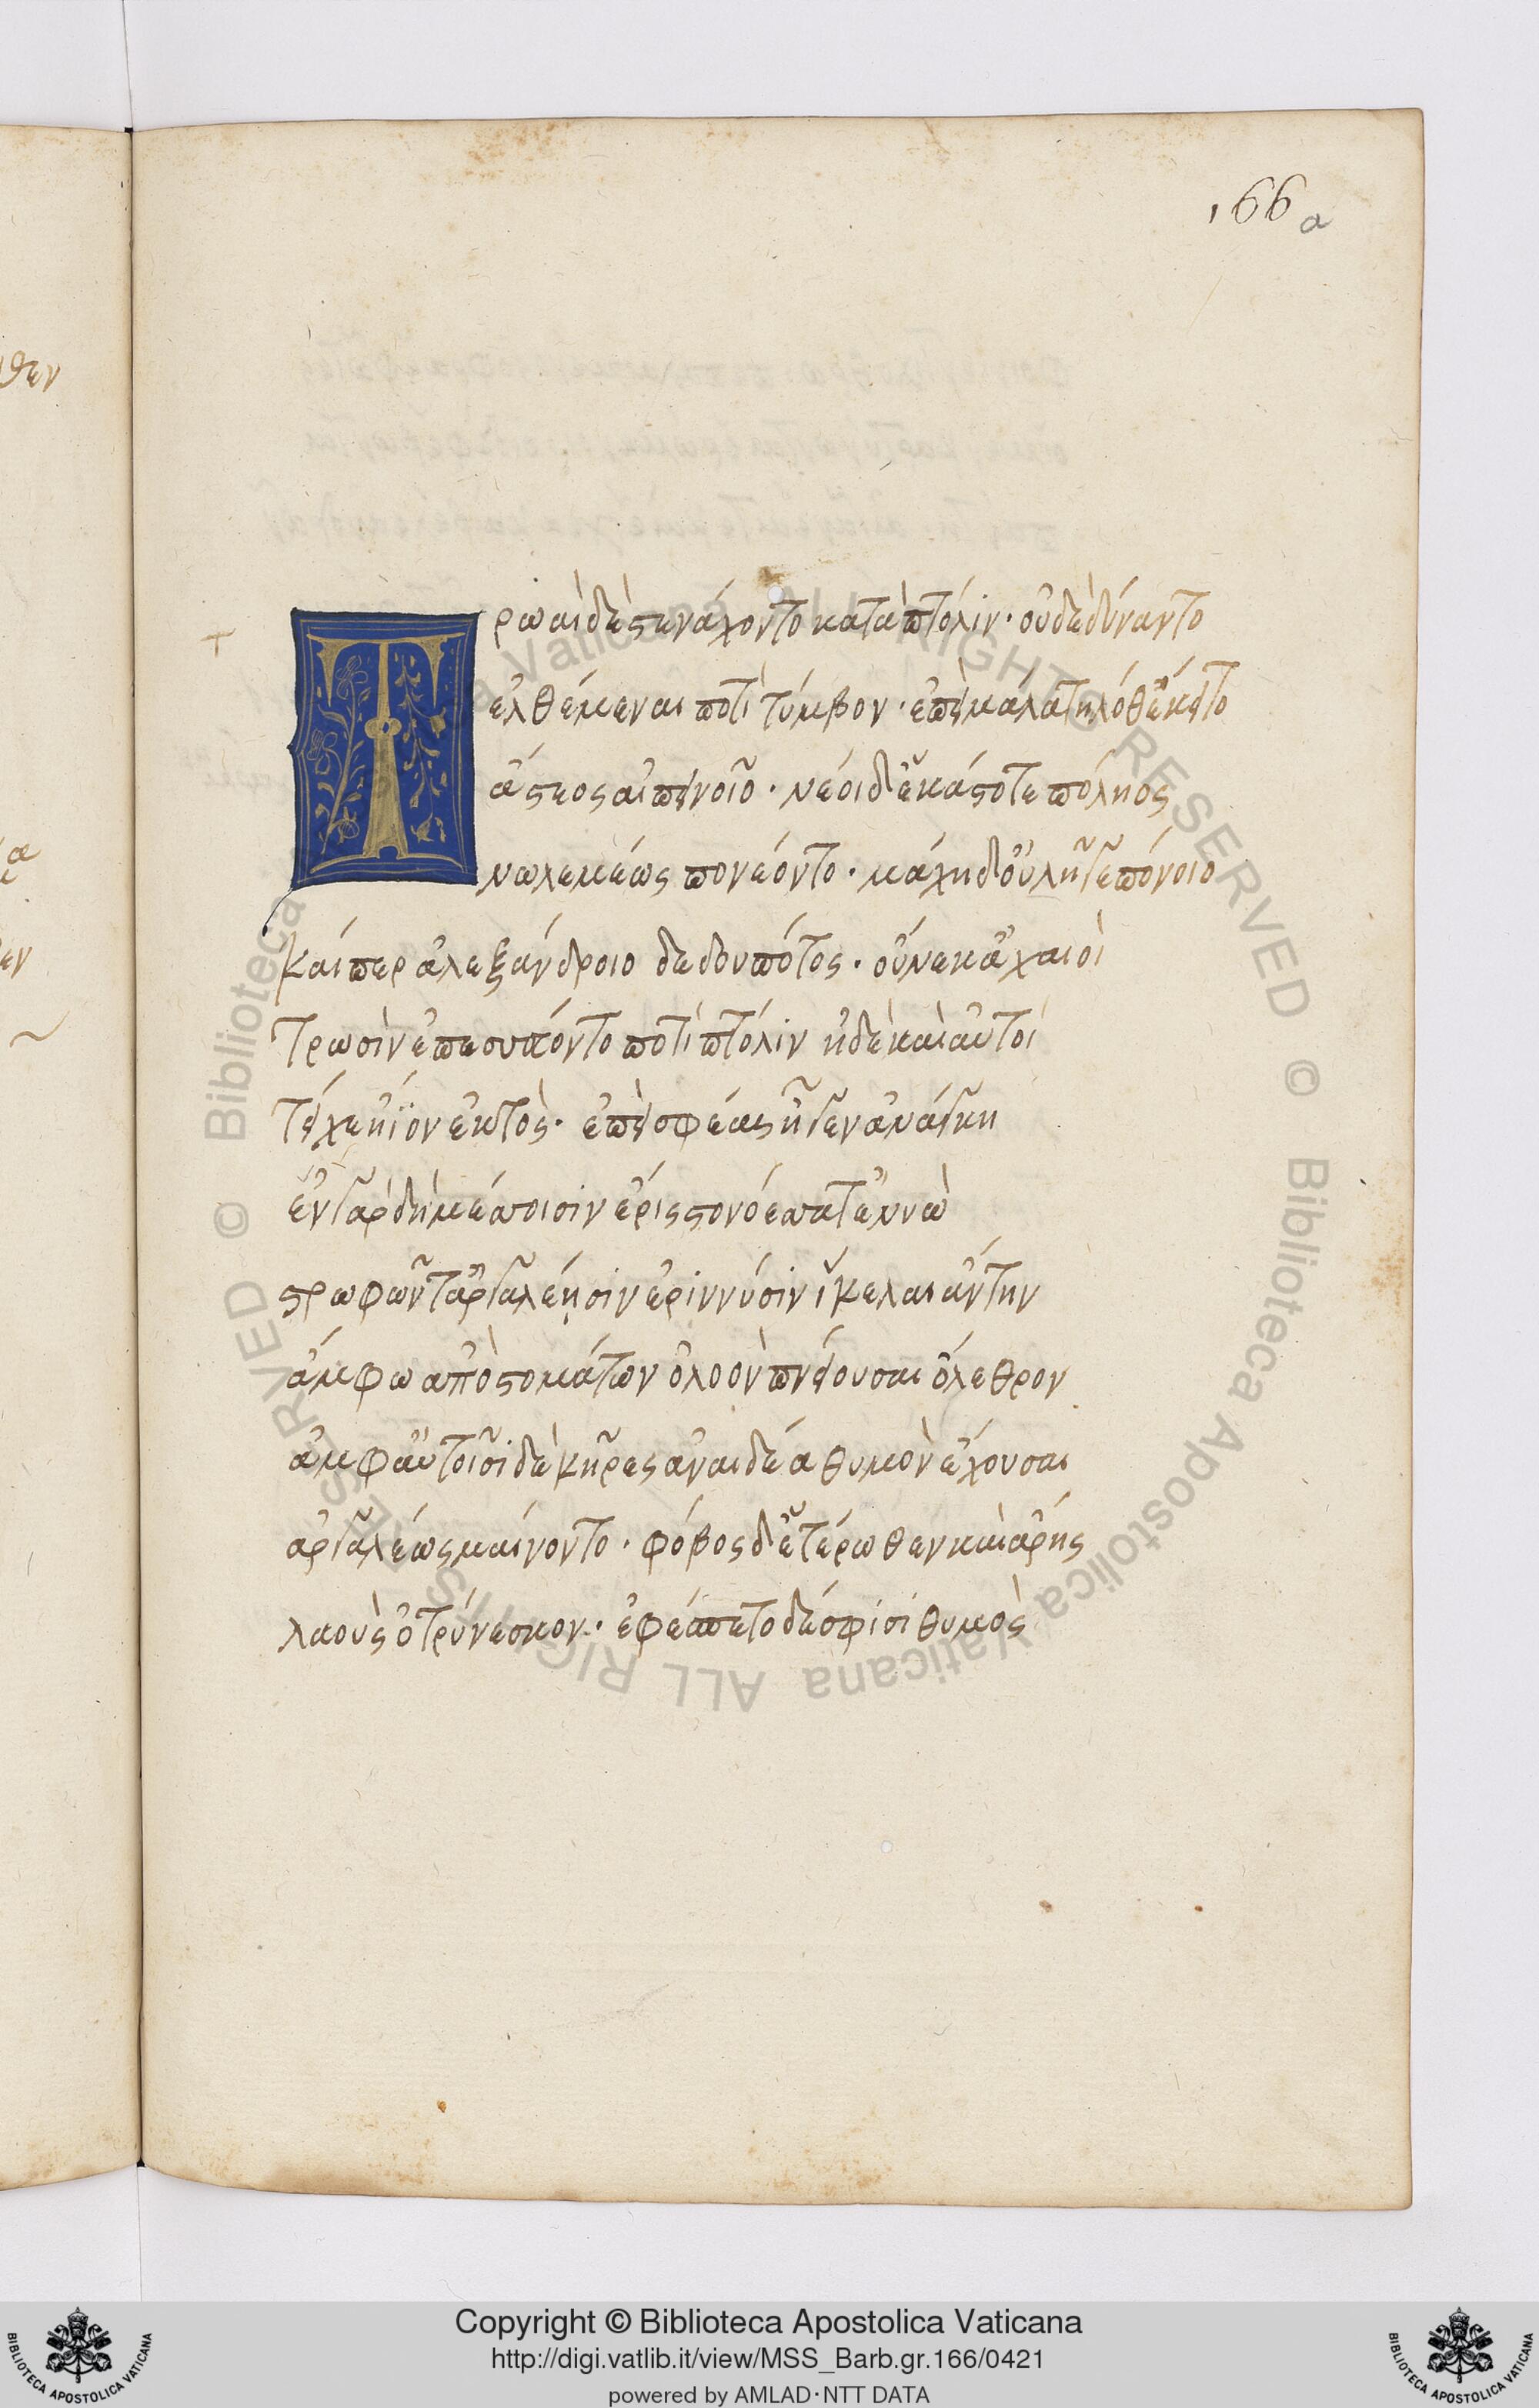 166a
Τρωαὶ δὲ στενάχοντο κατὰ πτόλιν· οὐδὲ δύναντο
ἐλθέμεναι ποτὶ τύμβον· ἐπεὶ μάλα τηλόθ' ἔκειτο
ἄστεος αἰπεινοῖο· νέοι δ' ἔκτοσθε πόληος
νωλεμέως πονέοντο· μάχη δ' οὐ λῆγε πόνοιο
καί περ ἀλεξάνδροιο δεδουπότος· οὕνεκ' ἀχαιοὶ
τρωσὶν ἐπεσσεύοντο ποτὶ πτόλιν ἠδὲ καὶ αὐτοὶ
τείχε ἤϊον ἐκτὸς· ἐπεὶ σφέας ἦγεν ἀνάγκη
ἐν γὰρ δὴ μέσσοισιν ἔρις στονόεσσά τ' ἐννὼ
στρωφῶντ' ἀργαλέῃσιν ἐριννύσιν εἴκελαι ἄντην
ἄμφω ἀπὸ στομάτων ὀλοὸν πνείουσαι ὄλεθρον
ἀμφ' αὐτοῖσι δὲ κῆρες ἀναιδέα θυμὸν ἔχουσαι
ἀργαλέως μαίνοντο· φόβος δ' ἑτέρωθεν καὶ ἄρης
λαοὺς ὀτρύνεσκον· ἐφέσπετο δέ σφισι θυμὸς
Copyright © Biblioteca Apostolica Vaticana
http://digi.vatlib.it/view/MSS_Barb.gr.166/0421
powered by AMLAD·NTT DATA